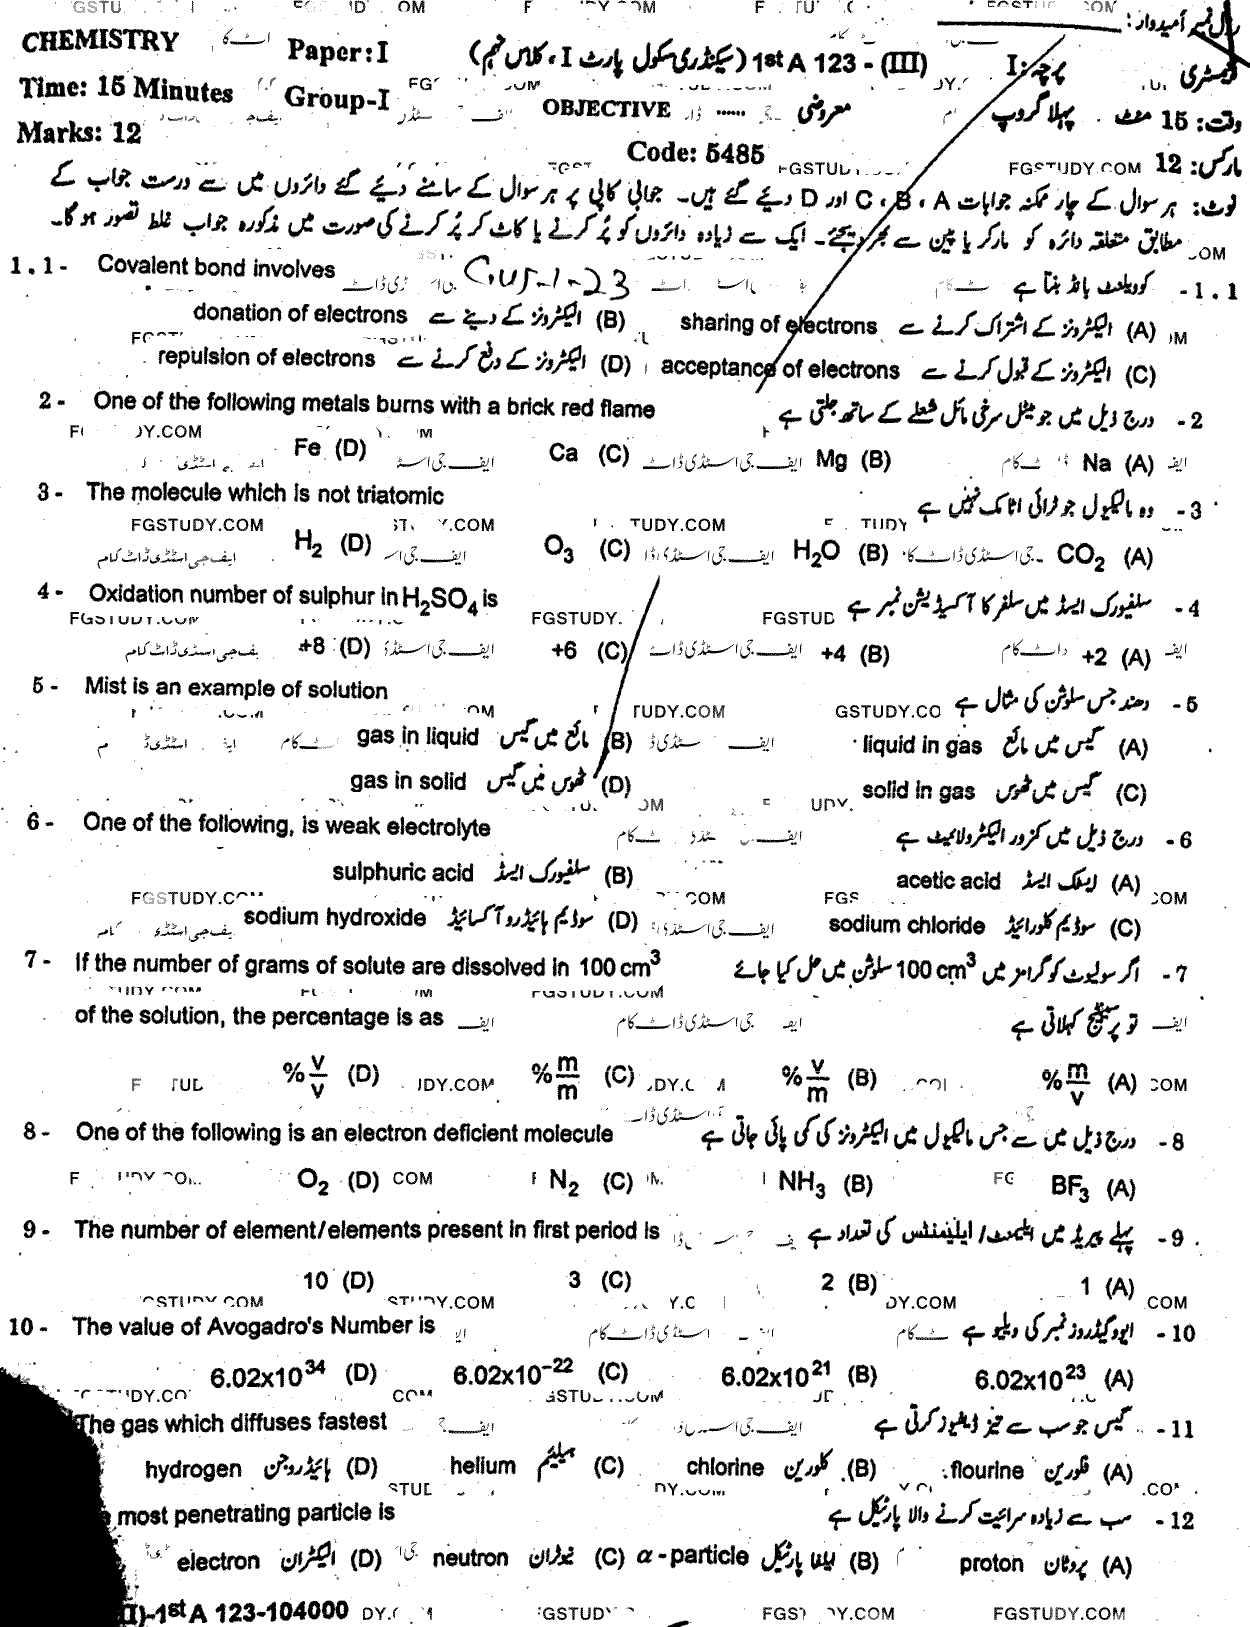 CHEMISTRY Paper:I 1st A 123 - (III) (سیکنڈری سکول پارٹ I ، کلاس نہم) پرچہ: I
رول نمبر امیدوار:
Time: 15 Minutes Group-I OBJECTIVE معروضی پہلا گروپ وقت: 15 منٹ
Marks: 12 Code: 5485 مارکس: 12
نوٹ: ہر سوال کے چار ممکنہ جوابات A ، B ، C اور D دیئے گئے ہیں۔ جوابی کاپی پر ہر سوال کے سامنے دیئے گئے دائروں میں سے درست جواب کے
مطابق متعلقہ دائرہ کو مارکر یا پین سے بھر دیجئے۔ ایک سے زیادہ دائروں کو پُر کرنے یا کاٹ کر پُر کرنے کی صورت میں مذکورہ جواب غلط تصور ہو گا۔
1.1- Covalent bond involves GUJ-1-23 کوویلنٹ بانڈ بنتا ہے -1.1
donation of electrons الیکٹرونز کے دینے سے (B) sharing of electrons الیکٹرونز کے اشتراک کرنے سے (A)
repulsion of electrons الیکٹرونز کے دفع کرنے سے (D) acceptance of electrons الیکٹرونز کے قبول کرنے سے (C)
2- One of the following metals burns with a brick red flame درج ذیل میں جو میٹل سرخی مائل شعلے کے ساتھ جلتی ہے -2
Fe (D) Ca (C) Mg (B) Na (A)
3- The molecule which is not triatomic وہ مالیکیول جو ٹرائی اٹامک نہیں ہے -3
FGSTUDY.COM
H₂ (D) O₃ (C) H₂O (B) CO₂ (A)
4- Oxidation number of sulphur in H₂SO₄ is سلفیورک ایسڈ میں سلفر کا آکسیڈیشن نمبر ہے -4
+8 (D) +6 (C) +4 (B) +2 (A)
5- Mist is an example of solution دھند جس سلوشن کی مثال ہے -5
gas in liquid مائع میں گیس (B) liquid in gas گیس میں مائع (A)
gas in solid ٹھوس میں گیس (D) solid in gas گیس میں ٹھوس (C)
6- One of the following, is weak electrolyte درج ذیل میں کمزور الیکٹرولائیٹ ہے -6
sulphuric acid سلفیورک ایسڈ (B) acetic acid ایسٹک ایسڈ (A)
sodium hydroxide سوڈیم ہائیڈروآکسائیڈ (D) sodium chloride سوڈیم کلورائیڈ (C)
7- If the number of grams of solute are dissolved in 100 cm³ اگر سولیوٹ کو گرامز میں 100 cm³ سلوشن میں حل کیا جائے -7
of the solution, the percentage is as تو پرسنٹیج کہلاتی ہے
% v/v (D) % m/m (C) % v/m (B) % m/v (A)
8- One of the following is an electron deficient molecule درج ذیل میں سے جس مالیکیول میں الیکٹرونز کی کمی پائی جاتی ہے -8
O₂ (D) N₂ (C) NH₃ (B) BF₃ (A)
9- The number of element/elements present in first period is پہلے پیریڈ میں ایلیمنٹ/ ایلیمنٹس کی تعداد ہے -9
10 (D) 3 (C) 2 (B) 1 (A)
10- The value of Avogadro's Number is ایووگیڈروز نمبر کی ویلیو ہے -10
6.02x10³⁴ (D) 6.02x10⁻²² (C) 6.02x10²¹ (B) 6.02x10²³ (A)
The gas which diffuses fastest گیس جو سب سے تیز ڈفیوز کرتی ہے -11
hydrogen ہائیڈروجن (D) helium ہیلیئم (C) chlorine کلورین (B) flourine فلورین (A)
most penetrating particle is سب سے زیادہ سرائیت کرنے والا پارٹیکل ہے -12
electron الیکٹران (D) neutron نیوٹران (C) α-particle ایلفا پارٹیکل (B) proton پروٹان (A)
)-1st A 123-104000 FGSTUDY.COM